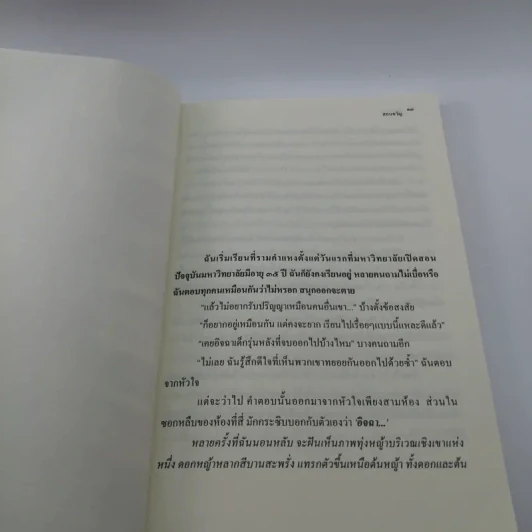 สอนขวัญ
ฉันเริ่มเรียนที่รามคำแหงตั้งแต่วันแรกที่มหาวิทยาลัยเปิดสอน
ปัจจุบันมหาวิทยาลัยมีอายุ ๓๕ ปี ฉันก็ยังคงเรียนอยู่ หลายคนถามไม่เบื่อหรือ
ฉันตอบทุกคนเหมือนกันว่าไม่หรอก สนุกออกจะตาย
“แล้วไม่อยากรับปริญญาเหมือนคนอื่นเขา...” บ้างตั้งข้อสงสัย
“ก็อยากอยู่เหมือนกัน แต่คงจะยาก เรียนไปเรื่อยๆแบบนี้แหละดีแล้ว”
“เคยอิจฉาเด็กรุ่นหลังที่จบออกไปบ้างไหม” บางคนถามอีก
“ไม่เลย ฉันรู้สึกดีใจที่เห็นพวกเขาทยอยกันออกไปด้วยซ้ำ” ฉันตอบ
จากหัวใจ
แต่จะว่าไป คำตอบนั้นออกมาจากหัวใจเพียงสามห้อง ส่วนใน
ซอกหลืบของห้องที่สี่ มักกระซิบบอกกับตัวเองว่า ‘อิจฉา...’
หลายครั้งที่ฉันนอนหลับ จะฝันเห็นภาพทุ่งหญ้าบริเวณเชิงเขาแห่ง
หนึ่ง ดอกหญ้าหลากสีบานสะพรั่ง แทรกตัวขึ้นเหนือต้นหญ้า ทั้งดอกและต้น